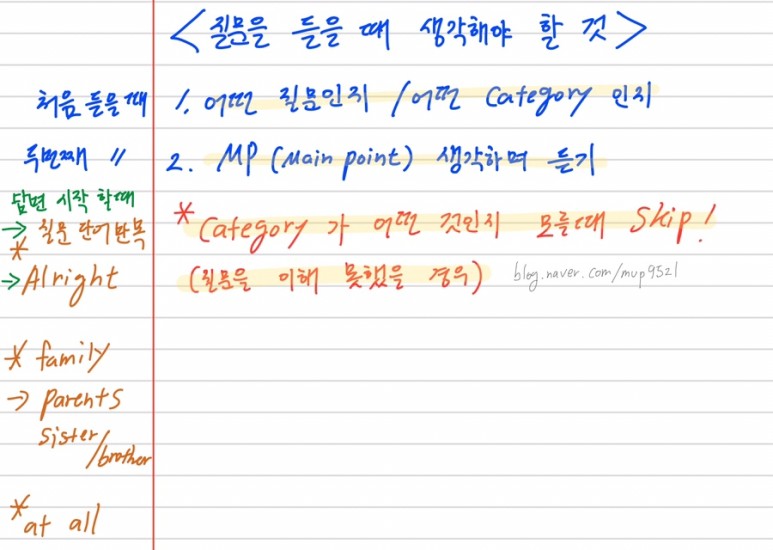 <질문을 들을 때 생각해야 할 것>
처음 들을 때 1. 어떤 질문인지 / 어떤 Category 인지
두번째 〃 2. MP (Main point) 생각하며 듣기
답변 시작 할때
→ 질문 단어 반복
* Category 가 어떤 것인지 모를때 Skip!
(질문을 이해 못했을 경우)
blog.naver.com/mvp9521
*
→ Alright
* family
→ parents
sister/brother
* at all